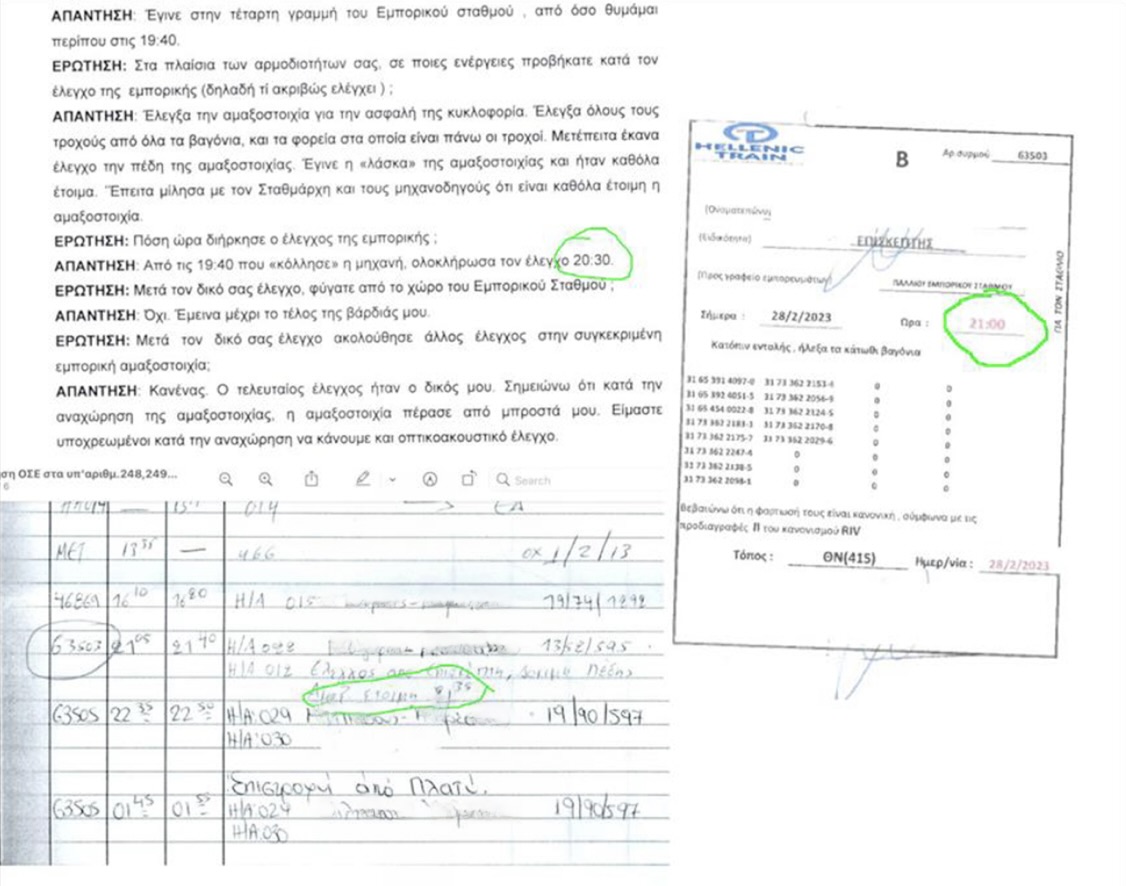 ΑΠΑΝΤΗΣΗ: Έγινε στην τέταρτη γραμμή του Εμπορικού σταθμού , από όσο θυμάμαι
περίπου στις 19:40.
ΕΡΩΤΗΣΗ: Στα πλαίσια των αρμοδιοτήτων σας, σε ποιες ενέργειες προβήκατε κατά τον
έλεγχο της εμπορικής (δηλαδή τί ακριβώς ελέγχει ) ;
ΑΠΑΝΤΗΣΗ: Έλεγξα την αμαξοστοιχία για την ασφαλή της κυκλοφορία. Έλεγξα όλους τους
τροχούς από όλα τα βαγόνια, και τα φορεία στα οποία είναι πάνω οι τροχοί. Μετέπειτα έκανα
έλεγχο την πέδη της αμαξοστοιχίας. Έγινε η «λάσκα» της αμαξοστοιχίας και ήταν καθόλα
έτοιμα. Έπειτα μίλησα με τον Σταθμάρχη και τους μηχανοδηγούς ότι είναι καθόλα έτοιμη η
αμαξοστοιχία.
ΕΡΩΤΗΣΗ: Πόση ώρα διήρκησε ο έλεγχος της εμπορικής ;
ΑΠΑΝΤΗΣΗ: Από τις 19:40 που «κόλλησε» η μηχανή, ολοκλήρωσα τον έλεγχο 20:30.
ΕΡΩΤΗΣΗ: Μετά τον δικό σας έλεγχο, φύγατε από το χώρο του Εμπορικού Σταθμού ;
ΑΠΑΝΤΗΣΗ: Όχι. Έμεινα μέχρι το τέλος της βάρδιάς μου.
ΕΡΩΤΗΣΗ: Μετά τον δικό σας έλεγχο ακολούθησε άλλος έλεγχος στην συγκεκριμένη
εμπορική αμαξοστοιχία;
ΑΠΑΝΤΗΣΗ: Κανένας. Ο τελευταίος έλεγχος ήταν ο δικός μου. Σημειώνω ότι κατά την
αναχώρηση της αμαξοστοιχίας, η αμαξοστοιχία πέρασε από μπροστά μου. Είμαστε
υποχρεωμένοι κατά την αναχώρηση να κάνουμε και οπτικοακουστικό έλεγχο.
ση ΟΣΕ στα υπ'αριθμ.248,249...
6
Search
014 ΕΔ
ΜΕΤ 13 35 — 466 οχ 1/2/13
46869 16 10 16 20 Η/Α 015 19/74/1292
63503 21 05 21 40 Η/Α 022 13/52/595
Η/Α 012 Έλεγχος από Επισκέπτη, δοκιμή Πέδης
Αμαξ έτοιμη 21 35
63505 22 35 22 50 Η/Α:029 19/90/597
Η/Α:030
Επιστροφή από Πλατύ.
63505 01 45 01 55 Η/Α:029 19/90/597
Η/Α:030
HELLENIC
TRAIN
B
Αρ.συρμού 63503
(Ονοματεπώνυμο)
(Ειδικότητα) ΕΠΙΣΚΕΠΤΗΣ
(Προς γραφείο εμπορευμάτων) ΠΑΛΑΙΟΥ ΕΜΠΟΡΙΚΟΥ ΣΤΑΘΜΟΥ
ΓΙΑ ΤΟΝ ΣΤΑΘΜΟ
Σήμερα : 28/2/2023 Ώρα : 21:00
Κατόπιν εντολής , ήλεξα τα κάτωθι βαγόνια
31 65 391 4097-0 31 73 362 2153-4 0 0
31 65 392 4051-5 31 73 362 2056-9 0 0
31 65 454 0022-8 31 73 362 2124-5 0 0
31 73 362 2183-1 31 73 362 2170-8 0 0
31 73 362 2175-7 31 73 362 2029-6 0 0
31 73 362 2247-4 0 0 0
31 73 362 2138-5 0 0 0
31 73 362 2098-1 0 0 0
Βεβαιώνω ότι η φόρτωσή τους είναι κανονική , σύμφωνα με τις
προδιαγραφές II του κανονισμού RIV
Τόπος : ΘΝ(415) Ημερ/νία : 28/2/2023